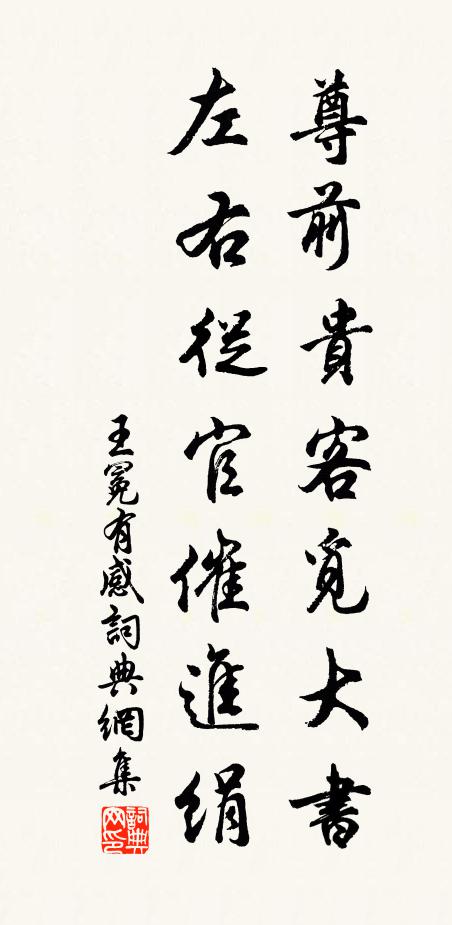 尊前貴客覓大書
左右從官催進絹
王冕有感詞典網集
詞典网印